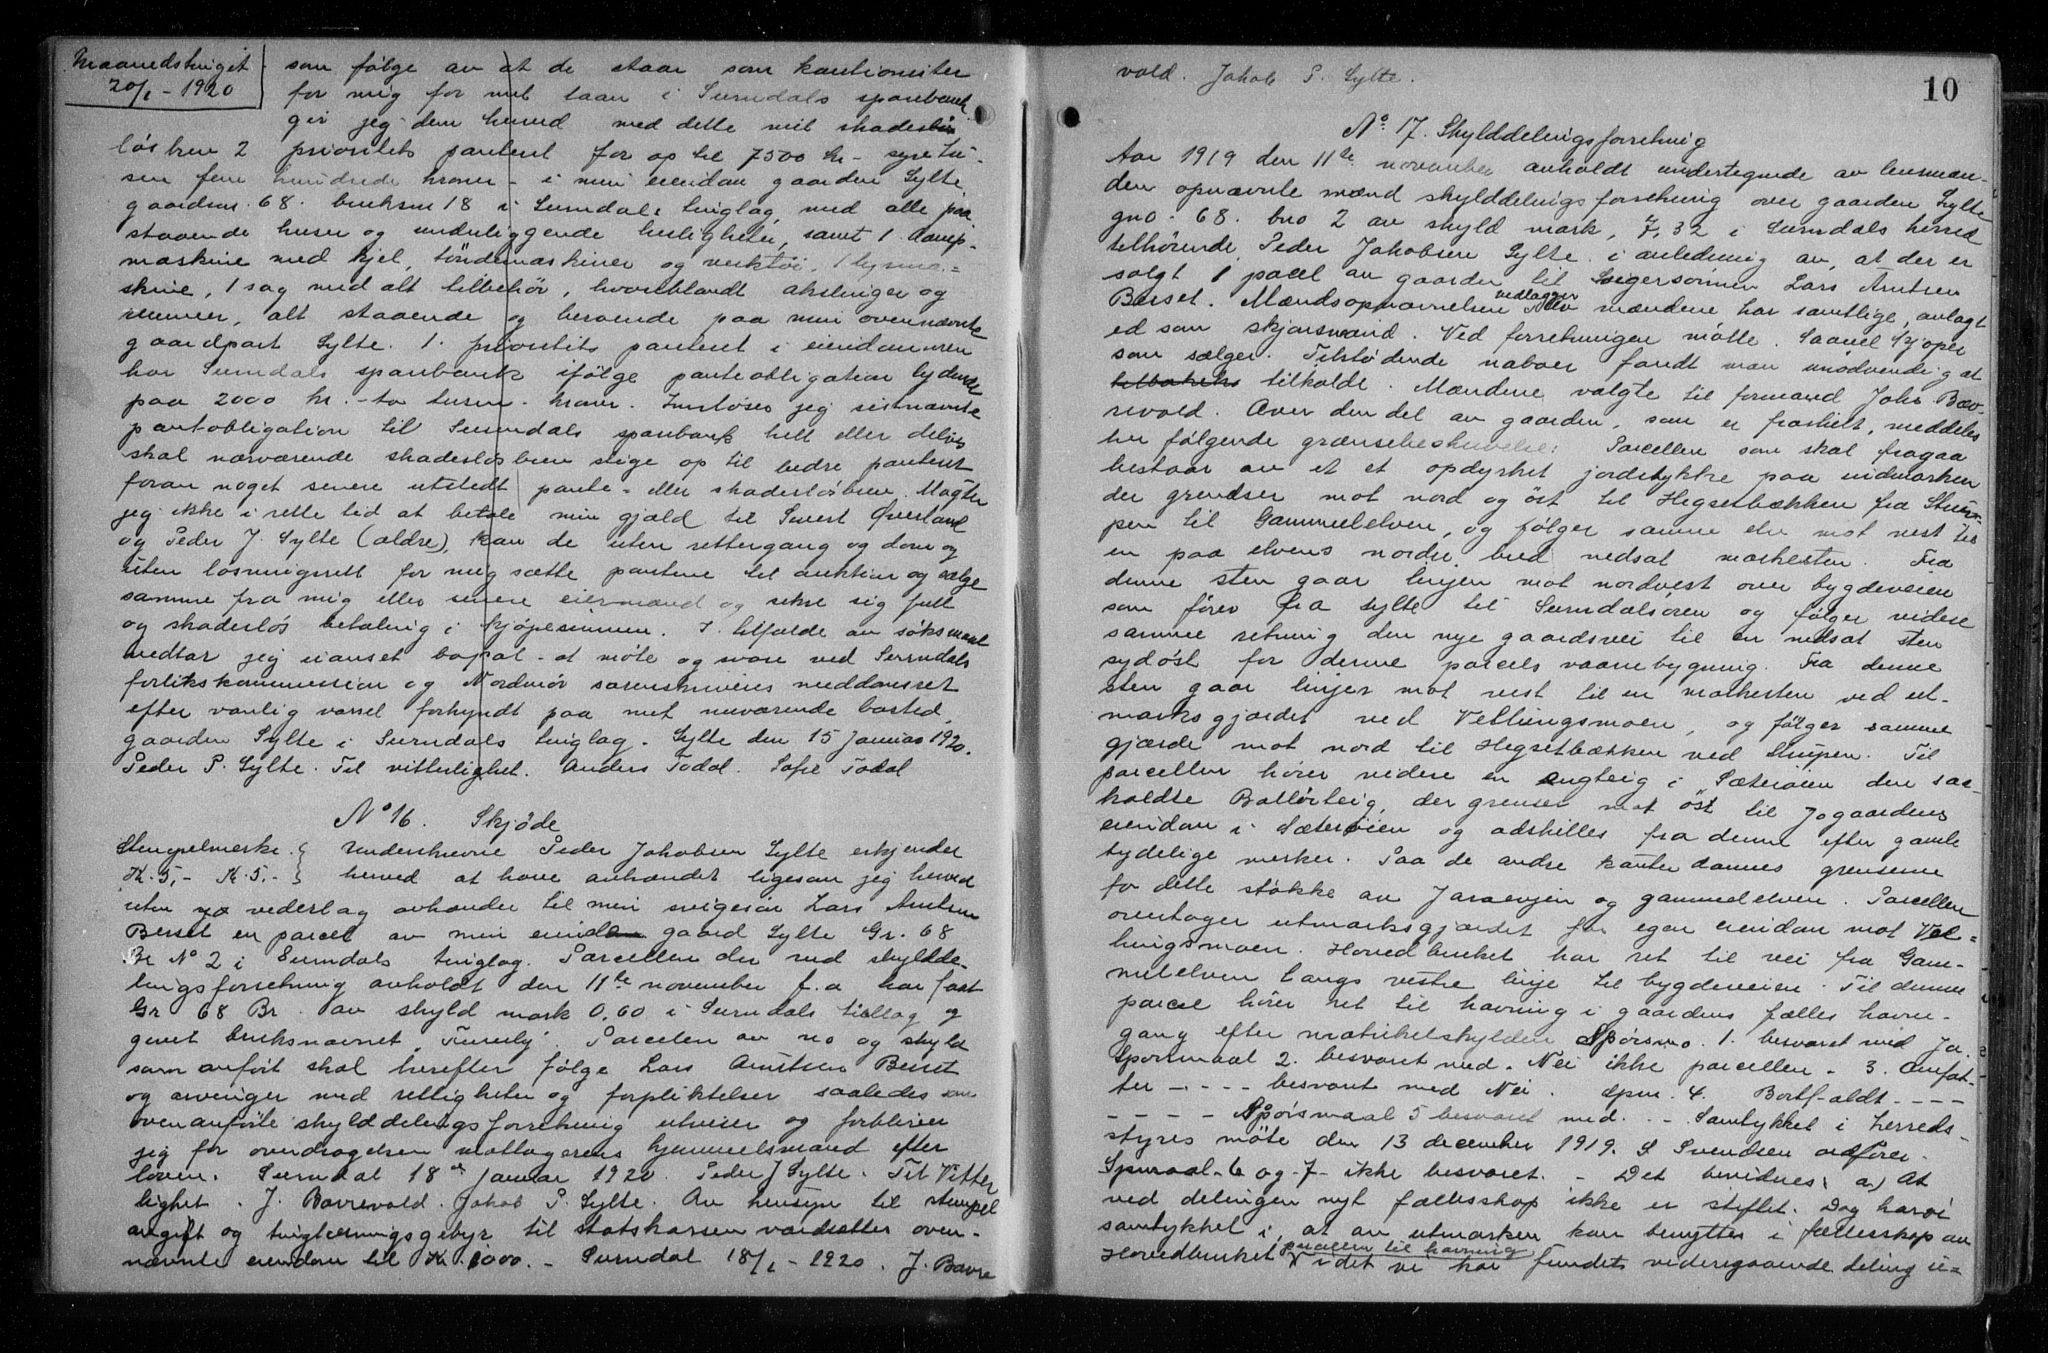 Maanedstinget
20/1 - 1920
som følge av at de staar som kautionister
for mig for mit laan i Surndals sparebank
gir jeg dem herved med dette mit skadesløs
løsbrev 2 prioritets panteret for op til 7500 kr - syv tu-
sen fem hundrede kroner - i min eiendom gaarden Sylte
gaardsnr. 68. bruksnr 18 i Surndals tinglag, med alle paa
staaende huser og underliggende herligheter, samt 1 damp-
maskine med kjel, tøndemaskiner og verktøi, 1
skine, 1 sag med alt tilbehør, hvoriblandt akslinger og
remmer, alt staaende og beroende paa min ovennævnte
gaardpart Sylte. 1. prioritets panteret i eiendommen
har Surndals sparebank ifølge panteobligation lydende
paa 2000 kr. - to tusen - kroner. Innløses jeg sistnævnte
pantobligation til Surndals sparebank helt eller delvis
skal nærværende skadesløsbrev stige op til bedre panteret
foran noget senere utstedt pante- eller skadesløsbrev. Magter
jeg ikke i rette tid at betale min gjæld til Sivert Øverland
og Peder J. Sylte (ældre), kan de uten rettergang og dom og
uten løsningsrett for mig sætte pantene til auktion og sælge
samme fra mig eller senere eiermænd og sikre sig full
og skadesløs betaling i kjøpesummen. I tilfælde av søksmaal
vedtar jeg uanset bopæl - at møte og svare ved Surndals
forlikskommission og Nordmør sorenskriveries meddomsret
efter vanlig varsel forkyndt paa mit nuværende bosted,
gaarden Sylte i Surndals tinglag. Sylte den 15 januar 1920.
Peder P. Sylte. Til vitterlighet. Anders Todal. Sofie Todal
No 16. Skjøde
Stempelmerke { Underskrevne Peder Jakobsen Sylte erkjender
Kr. 5,- Kr. 5,- } herved at have avhændet ligesom jeg herved
uten vederlag avhænder til min svigersøn Lars Arntsen
Beset en parcel av min eiendom gaard Sylte Gr. 68
Br No 2 i Surndals tinglag. Parcellen der ved skylddel-
ingsforretning avholdt den 11te november f.a har faat
Gr 68 Br . av skyld mark 0,60 i Surndals tinglag og
givet bruksnavnet . Parcelen av no og skyld
som anført skal herefter følge Lars Arntsen Beset
og arvinger med rettigheter og forpliktelser saaledes som
ovenanførte skylddelingsforretning utviser og forbliver
jeg for overdragelsen mottagerens hjemmelsmand efter
loven. Surndal 18de januar 1920. Peder J Sylte. Til Vitter
lighet. J. Bævrevold. Jakob P. Sylte. Av hensyn til stempel
avgift og tinglæsningsgebyr til statskassen værdsættes oven-
nævnte eiendom til Kr. 1000. - Surndal 18/1 - 1920. J. Bævre
vold. Jakob P. Sylte.
10
No 17. Skylddelingsforretning
Aar 1919 den 11te november avholdt undertegnede av lensman-
den opnævnte mænd skylddelingsforretning over gaarden Sylte
gno. 68. bno 2 av skyld mark, 7,32 i Surndals herred
tilhørende Peder Jakobsen Sylte i anledning av, at der er
solgt 1 pacel av gaarden til svigersønnen Lars Arntsen
Beset. Mændsopnævnelsen vedlægges. Av mændene har samtlige avlagt
ed som skjønsmænd. Ved forretningen møtte. Saavel kjøper
som sælger. Tilstødende naboer fandt man unødvendig at
tilkalde. Mændene valgte til formand Johs Bæv-
revold. Over den del av gaarden, som er fraskilt, meddeles
her følgende grænsebeskrivelse: Parcellen som skal fragaa
bestaar av et et opdyrket jordstykke paa indmarken
der grendser mot nord og øst til Hegsetbækken fra Stu-
pen til Gammelelven, og følger samme elv mot vest til
en paa elvens nordre bred nedsat merkesten. Fra
denne sten gaar linjen mot nordvest over bygdeveien
som fører fra Sylte til Surndalsøren og følger videre
samme retning den nye gaardsvei til en nedsat sten
sydøst for denne parcels vaanebygning. Fra denne
sten gaar linjer mot vest til en merkesten ved ut-
marksgjærdet ved Vetlingsmoen, og følger samme
gjærde mot nord til Hegsetbækken ved Stupen. Til
parcellen hører videre en engteig i Sæterøien den saa-
kaldte Balløiteig, der grenser mot øst til Jogaardens
eiendom i Sæterøien og adskilles fra denne efter gamle
tydelige merker. Paa de andre kanter dannes grenserne
for dette støkke av og gammelelven. Parcellen
overtager utmarksgjærdet for egen eiendom mot Vet-
lingsmoen. Hovedbruket har ret til vei fra Gam-
melelven langs vestre linje til bygdeveien. Til denne
parcel hører ret til havning i gaardens fælles havne-
gang efter matrikelskylden. Spørsmo. 1. besvaret med Ja.
Spørsmaal 2. besvaret med. Nei ikke parcellen. 3. Omfat-
ter - - - - besvaret med Nei. spm. 4. Bortfaldt. - - - -
- - - - Spørsmaal 5 besvaret med. - Samtykket i herreds-
styres møte den 13 december 1919. S Svendsen ordfører.
Spmaal - 6 og - 7 - ikke besvaret. - Det bevidnes: a) At
ved delingen nyt fællesskap ikke er stiftet. Dog har vi
samtykket i, at av utmarken kan benyttes i fællesskap av
Hovedbruket parcellen til havning idet vi har fundet videregaaende deling u-